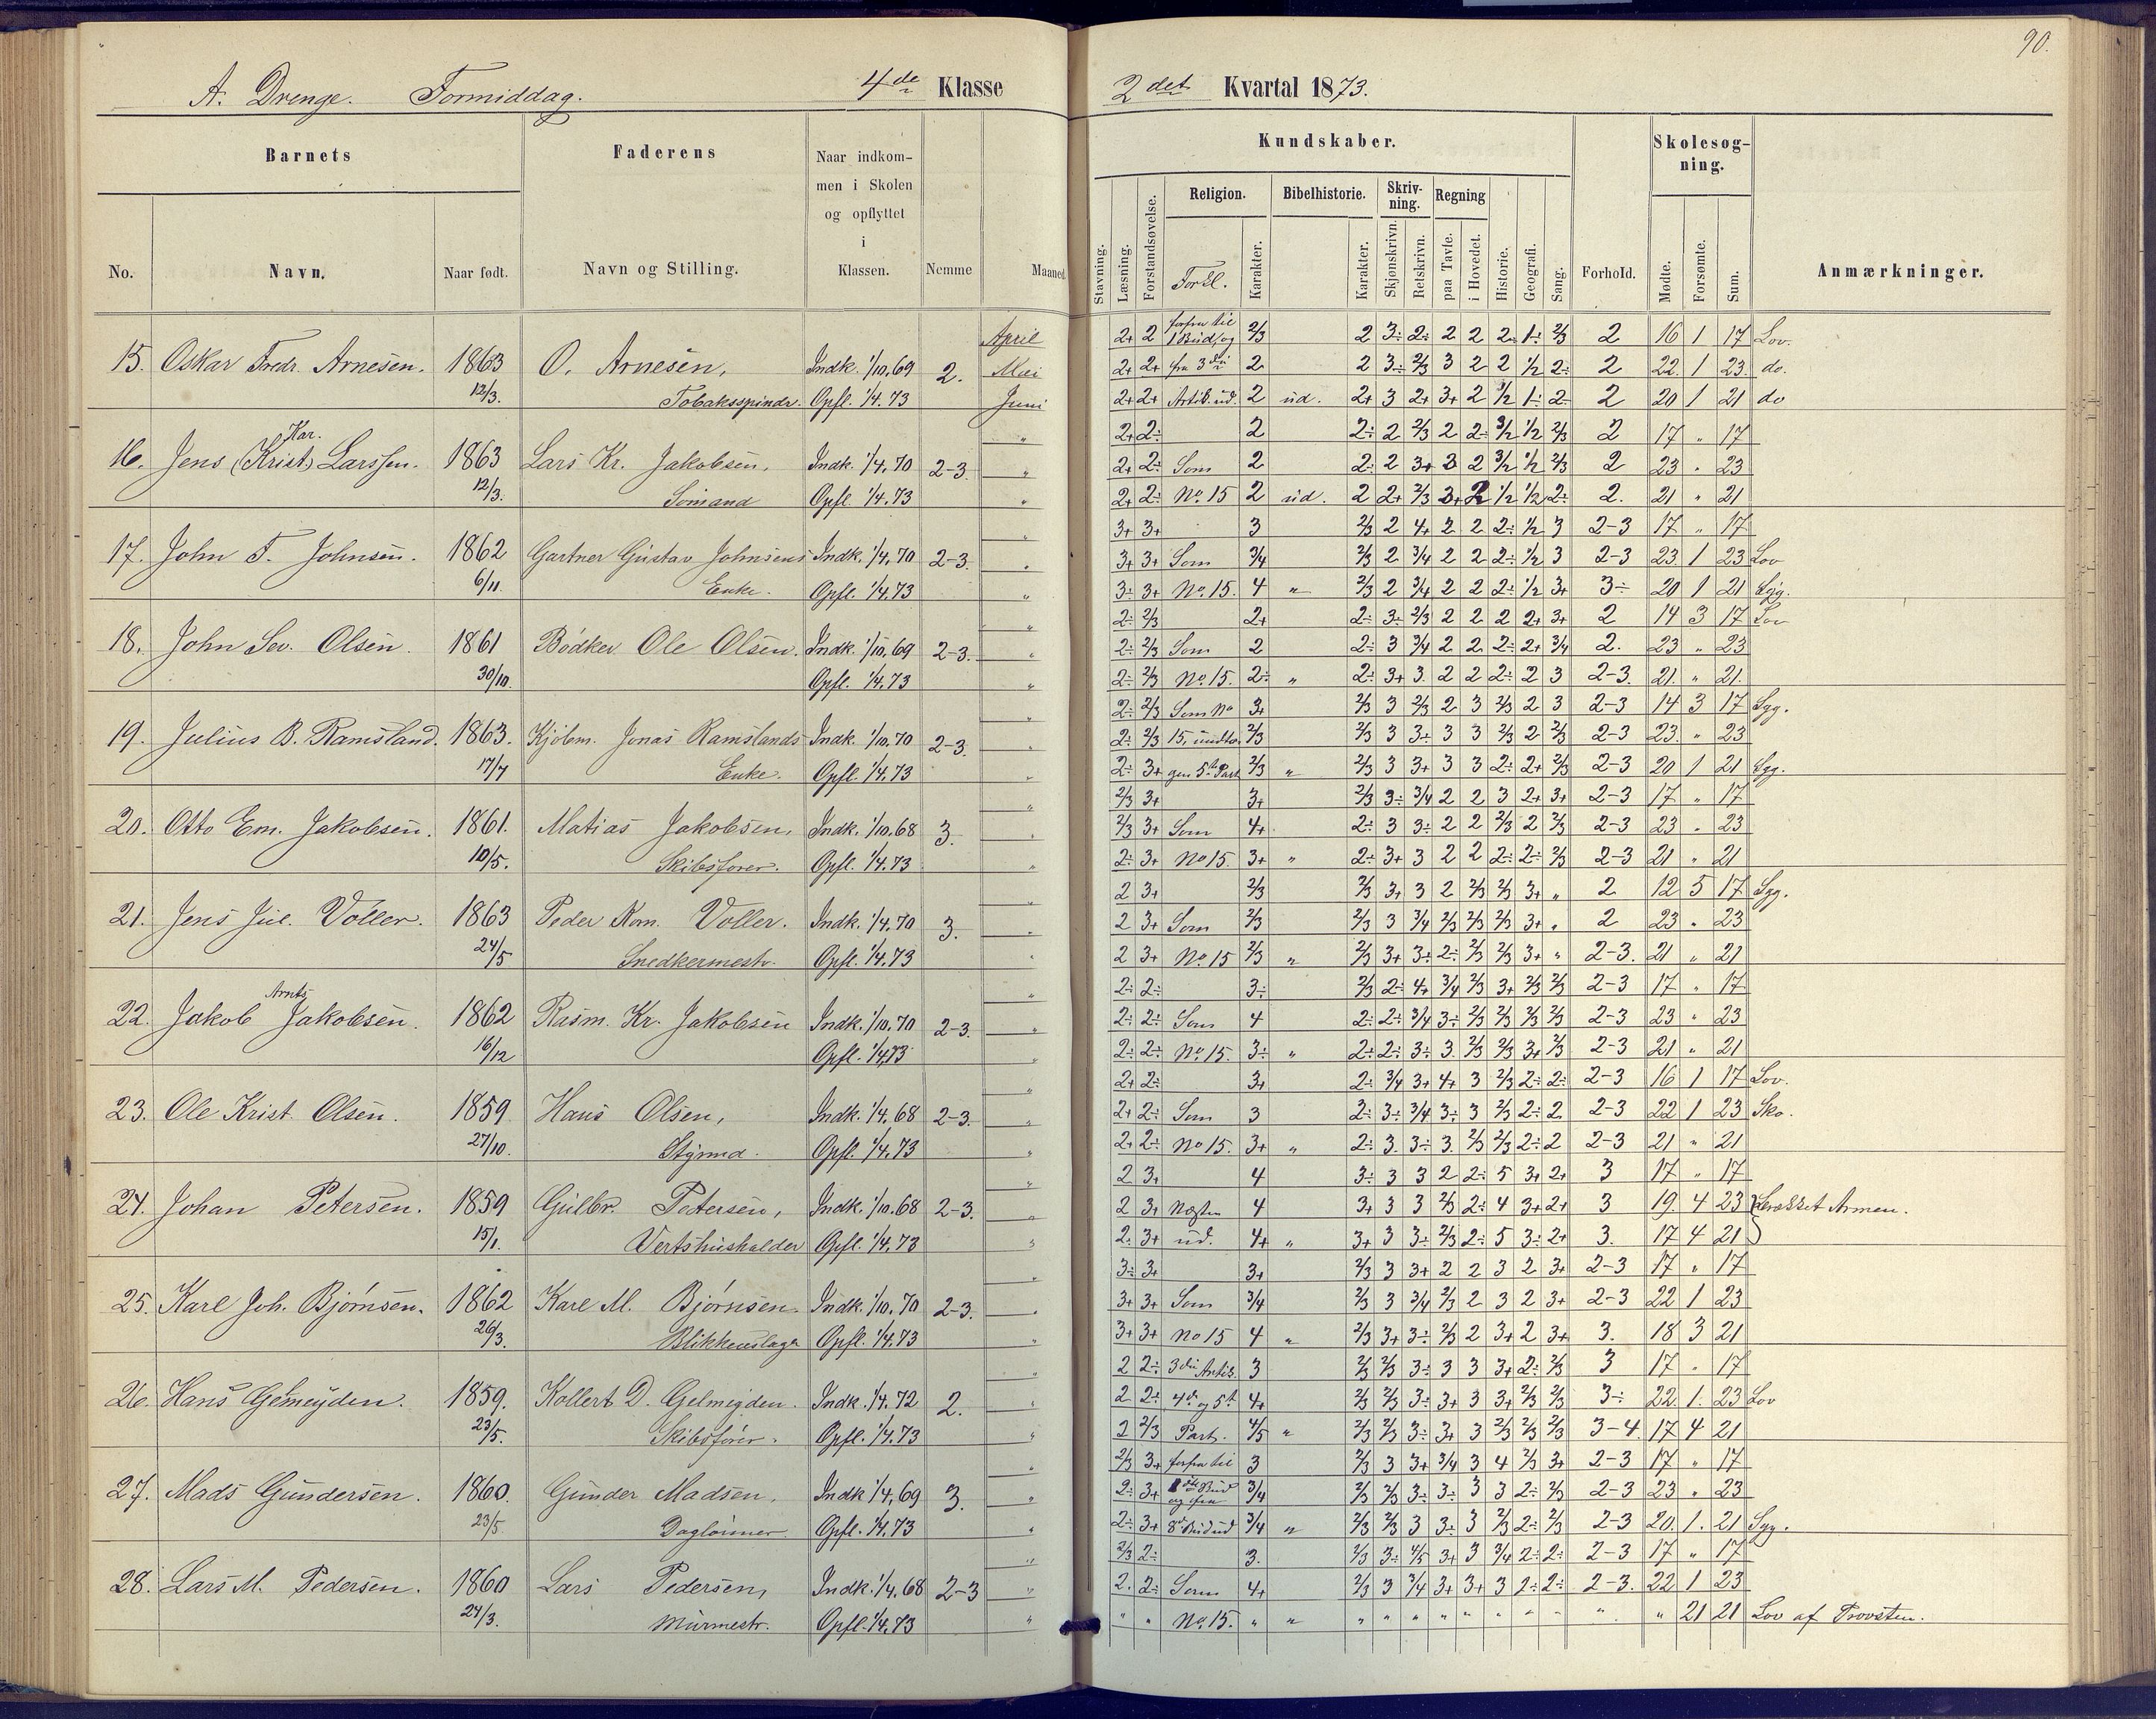 90.
A. Drenge. Formiddag. 4de Klasse 2det Kvartal 1873.
Barnets Faderens Naar indkommen i Skolen og opflyttet i Klassen. Nemme Maaned
No. Navn. Naar født. Navn og Stilling.
Kundskaber. Forhold. Skolesøgning. Anmærkninger.
Stavning. Læsning. Forstandsøvelse. Religion. Forkl. Karakter. Bibelhistorie. Karakter. Skrivning. Skjønskrivn. Retskrivn. Regning paa Tavle. i Hovedet. Historie. Geografi. Sang. Mødte. Forsømte. Sum.
April 2+ 2 forfra til 1 Bud og 2/3 2 3÷ 2÷ 2 2 2÷ 1÷ 2/3 2 16 1 17 Lov.
15. Oskar Fredr. Arnesen. 1863 O. Arnesen, Indk. 1/10,69 2. Mai 2+ 2+ fra 3die 2 2 3÷ 2/3 3 2 2 1/2 2÷ 2 22 1 23 do.
12/3. Tobaksspinder. Opfl. 1/4.73 Juni 2+ 2+ Artik. ud. 2 ud. 2+ 3 2+ 3+ 2 1/2 1÷ 2÷ 2 20 1 21 do
Kar. " 2+ 2÷ 2 2÷ 2 2/3 2 2÷ 3/2 1/2 2/3 2 17 " 17
16. Jens (Krist) Larssen. 1863 Lars Kr. Jakobsen, Indk. 1/4,70 2-3. " 2+ 2÷ Som 2 2÷ 2 3+ 3 2 3/2 1/2 2/3 2 23 " 23
12/3. Sømand Opfl. 1/4.73 " 2+ 2÷ No 15 2 ud. 2 2+ 2/3 3+ 2 1/2 1/2 2÷ 2. 21 " 21
" 3+ 3+ 3 2/3 2 4+ 2 2 2÷ 1/2 3 2-3 17 " 17
17. John F. Johnsen. 1862 Gartner Gustav Johnsens Indk. 1/4,70 2-3. " 3+ 3+ Som 3/4 2/3 2 3/4 2 2 2÷ 1/2 3 2-3 23 1 23 Lov
6/11. Enke. Opfl. 1/4.73 " 3÷ 3+ No. 15. 4 " 2/3 2 3/4 2 2 2÷ 1/2 3+ 3÷ 20 1 21 Syg.
" 2÷ 2/3 2+ 2÷ 3÷ 2/3 2 2 2 2+ 3+ 2 14 3 17 Lov
18. John Sev. Olsen. 1861 Bødker Ole Olsen. Indk. 1/10,69 2-3. " 2÷ 2/3 Som 2 2÷ 3 3/4 2 2 2÷ 2+ 3/4 2. 23 " 23
30/10. Opfl. 1/4.73 " 2÷ 2/3 No. 15. 2÷ " 2÷ 3+ 3 2 2 2÷ 2 3 2-3 21. " 21.
" 2÷ 2/3 Som No 3+ 2/3 3 2/3 2 3 2/3 2 3 2-3 14 3 17 Syg.
19. Julius B. Ramsland. 1863. Kjøbm. Jonas Ramslands Indk. 1/10.70 2-3. " 2÷ 2/3 15, undta 2/3 2/3 3 3+ 3 3 2/3 2 2/3 2-3 23 " 23
17/7 Enke. Opfl. 1/4.73 " 2÷ 3+ gen 5te Part 2/3 " 2/3 3 3+ 3 3 2÷ 2+ 2/3 2-3 20 1 21 Syg.
" 2/3 3+ 3+ 2/3 3÷ 3/4 2 2 3 2+ 3+ 2-3 17 " 17
20. Otto Em. Jakobsen. 1861. Matias Jakobsen, Indk. 1/10,68 3. " 2/3 3+ Som 4+ 2÷ 3 3÷ 2 2 2/3 2 2/3 2-3 23 " 23
10/5. Skibsfører. Opfl. 1/4.73 " 2÷ 3+ No 15. 3+ " 2÷ 3+ 3 2 2 2÷ 2÷ 2/3 2-3 21 " 21
" 2 3+ 2/3 2/3 3+ 3 2 2/3 2/3 3+ " 2 12 5 17 Syg.
21. Jens Jul. Voller. 1863 Peder Rom. Voller. Indk. 1/4.70 3. " 2 3+ Som 2/3 2/3 3 3/4 2/3 2/3 2/3 3+ " 2 23 " 23
24/5 Snedkermestr. Opfl. 1/4.73 " 2 3+ No 15 2/3 " 2/3 3+ 3÷ 2÷ 2/3 2/3 3+ " 2-3. 21 " 21
Arnts " 2÷ 2÷ 3÷ 2/3 2÷ 4+ 3/4 2/3 3+ 2/3 2/3 2-3 17 " 17
22. Jakob Jakobsen. 1862 Rasm. Kr. Jakobsen Indk. 1/10.70 2-3. " 2÷ 2÷ Som 4 2÷ 2÷ 3/4 3÷ 2/3 2/3 2/3 2/3 2-3 23 " 23
16/12 Opfl. 1/4.73 " 2÷ 2÷ No. 15. 3÷ " 2÷ 2÷ 3÷ 3 2/3 2/3 3+ 2/3 2-3 21 " 21
" 2+ 2÷ 3+ 2÷ 3/4 3+ 4+ 3 2/3 2÷ 2÷ 2-3 16 1 17 Lov.
23. Ole Krist. Olsen. 1859 Hans Olsen, Indk. 1/4.68 2-3. " 2+ 2÷ Som 3 2÷ 3÷ 3/4 3÷ 3 2/3 2÷ 2 2-3 22 1 23 Sko.
27/10. Styrmd. Opfl. 1/4.73 " 2+ 2÷ No 15. 3+ " 2÷ 3. 3÷ 3. 2/3 2/3 2÷ 2 2-3 21 " 21
" 2 3+ 4 3÷ 3 3 2 2÷ 5 3+ 2+ 3 17 " 17
24. Johan Petersen. 1859 Gulbr. Petersen, Indk. 1/10.68 2-3. " 2 3+ Næsten 4 3+ 3 3 2/3 2÷ 4 3+ 2+ 3 19. 4 23 Brækket Armen.
15/1. Vertshusholder Opfl. 1/4.73 " 2. 3+ ud. 4+ " 3+ 3 3÷ 2/3 2÷ 5 3÷ 2+ 3. 17 4 21
" 3÷ 3+ 3+ 2/3 3 3+ 2 2 3 2 3+ 2-3 17 " 17
25. Karl Joh. Bjørnsen. 1862 Karl M. Bjørnsen Indk. 1/10.70 2-3. " 3+ 3+ Som 3/4 2/3 3 3/4 2/3 2 3 2 3+ 2-3 22 1 23
26/3. Blikkenslager Opfl. 1/4.73 " 3+ 3+ No 15 4 " 2/3 3+ 3÷ 2/3 2 3+ 2 3+ 3. 18 3 21
" 2 2÷ 3die Artik. 3 2/3 2/3 3÷ 3 3 3+ 2÷ 2/3 3 17 " 17
26. Hans Gelmeyden. 1859. Kollert D. Gelmeyden. Indk. 1/4.72 2. " 2 2÷ 4de og 5te 4+ 2/3 2/3 3÷ 3+ 3 3+ 2/3 2/3 3÷ 22. 1. 23 Lov
23/5. Skibsfører. Opfl. 1/4.73 " 2 2/3 Part. 4/5 " 2/3 2/3 3÷ 3+ 3 2/3 2/3 2/3 3-4. 17 4 21
" 2/3 3+ forfra til 3 2/3 3 3+ 3/4 3 4 2/3 3+ 2-3 17 " 17
27. Mads Gundersen. 1860. Gunder Madsen, Indk 1/4,69 3. " 2÷ 3+ Bud og fra 3/4 2/3 2/3 3÷ 3÷ 3 3 2÷ 2/3 2-3 23 " 23
23/5. Daglønner. Opfl. 1/4.73 " 2÷ 3+ 8de Bud ud 3/4 " 2/3 2/3 3 3÷ 3 2/3 2÷ 2/3 2-3 20. 1. 21 Syg.
" 2/3 2÷ 3. 2/3 3÷ 4/5 3+ 3 3/4 2÷ 2÷ 2-3 17 " 17
28. Lars M. Pedersen. 1860 Lars Pedersen, Indk. 1/4,68 2-3 " 2. 2÷ Som 4+ 2/3 3 3/4 3+ 3+ 3 2÷ 2÷ 2-3. 22 1 23
24/3. Murmestr. Opfl. 1/4.73 " " " No. 15. " " " " " " " " " " " " 21 21 Lov af Provsten.